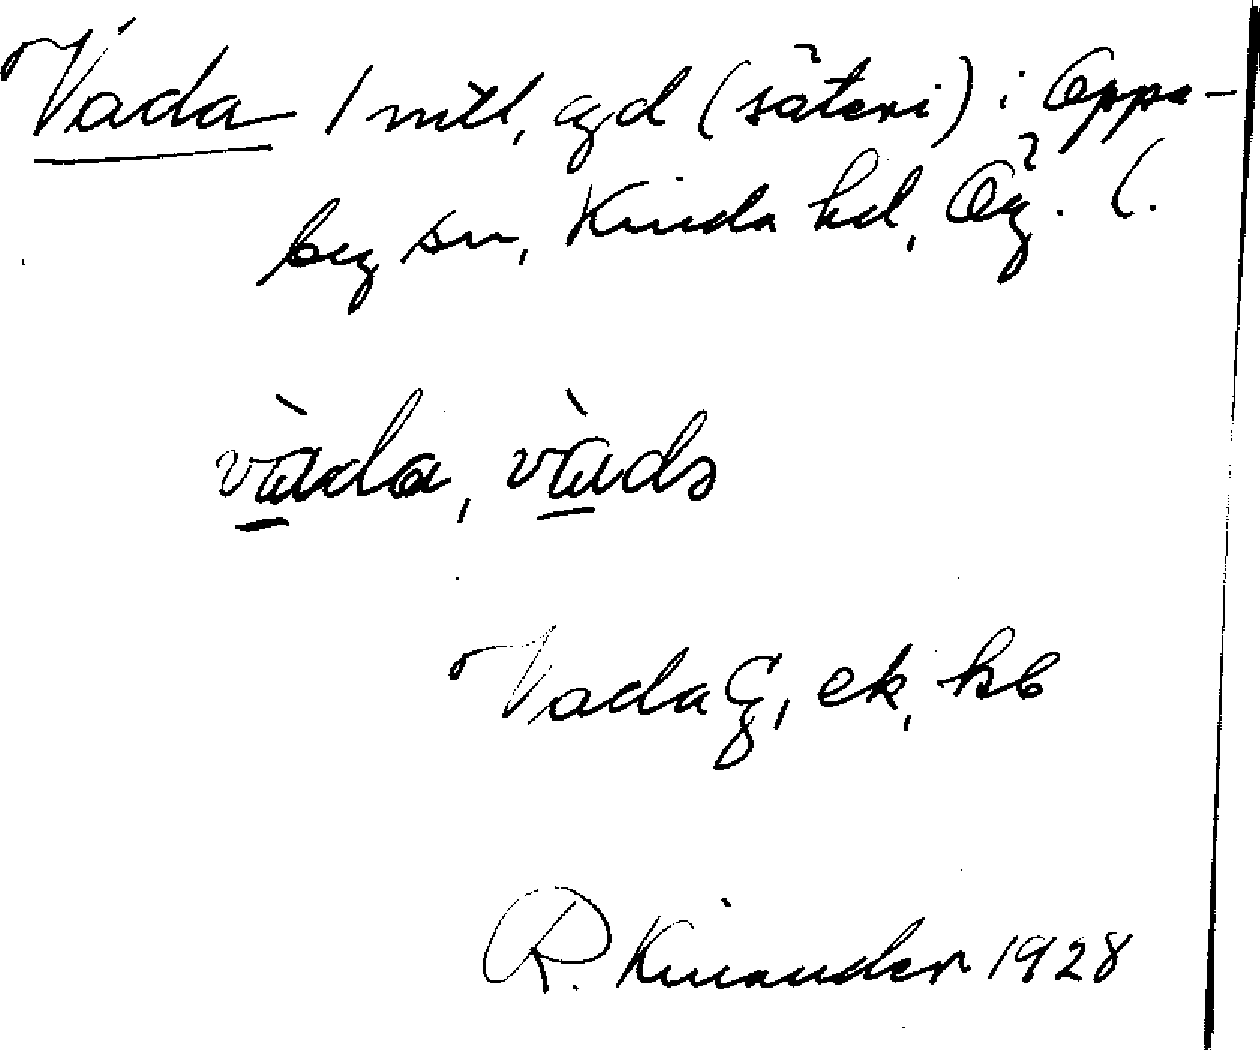 Vada 1 mtl, gd (säteri) i Oppe-
by sn, Kinda hd, Ög. (.
vàda, vàdə
Vada G, ek, kb
R. Kinander 1928